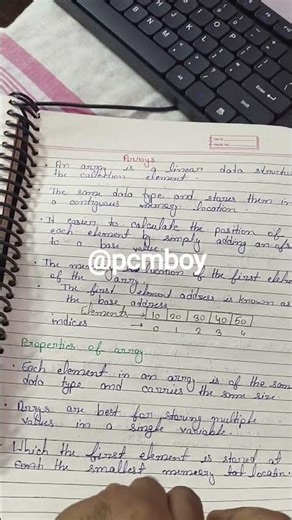 Arrays
• An array is a linear data structu
the collection element.
• The same data type and stores them in
a contiguous memory location
• It easier to calculate the position of
each element by simply adding an ofs
to a base value
@pcmboy
• The mem location of the first elem
of the array.
• The first element address is known as
the base address.
Elements → 10 20 30 40 50
indices → 0 1 2 3 4
Properties of array
• Each element in an array is of the same
data type and carries the same size.
• Arrays are best for storing multiple
values in a single variable.
• Which the first element is stored at
the smallest memory locatin.